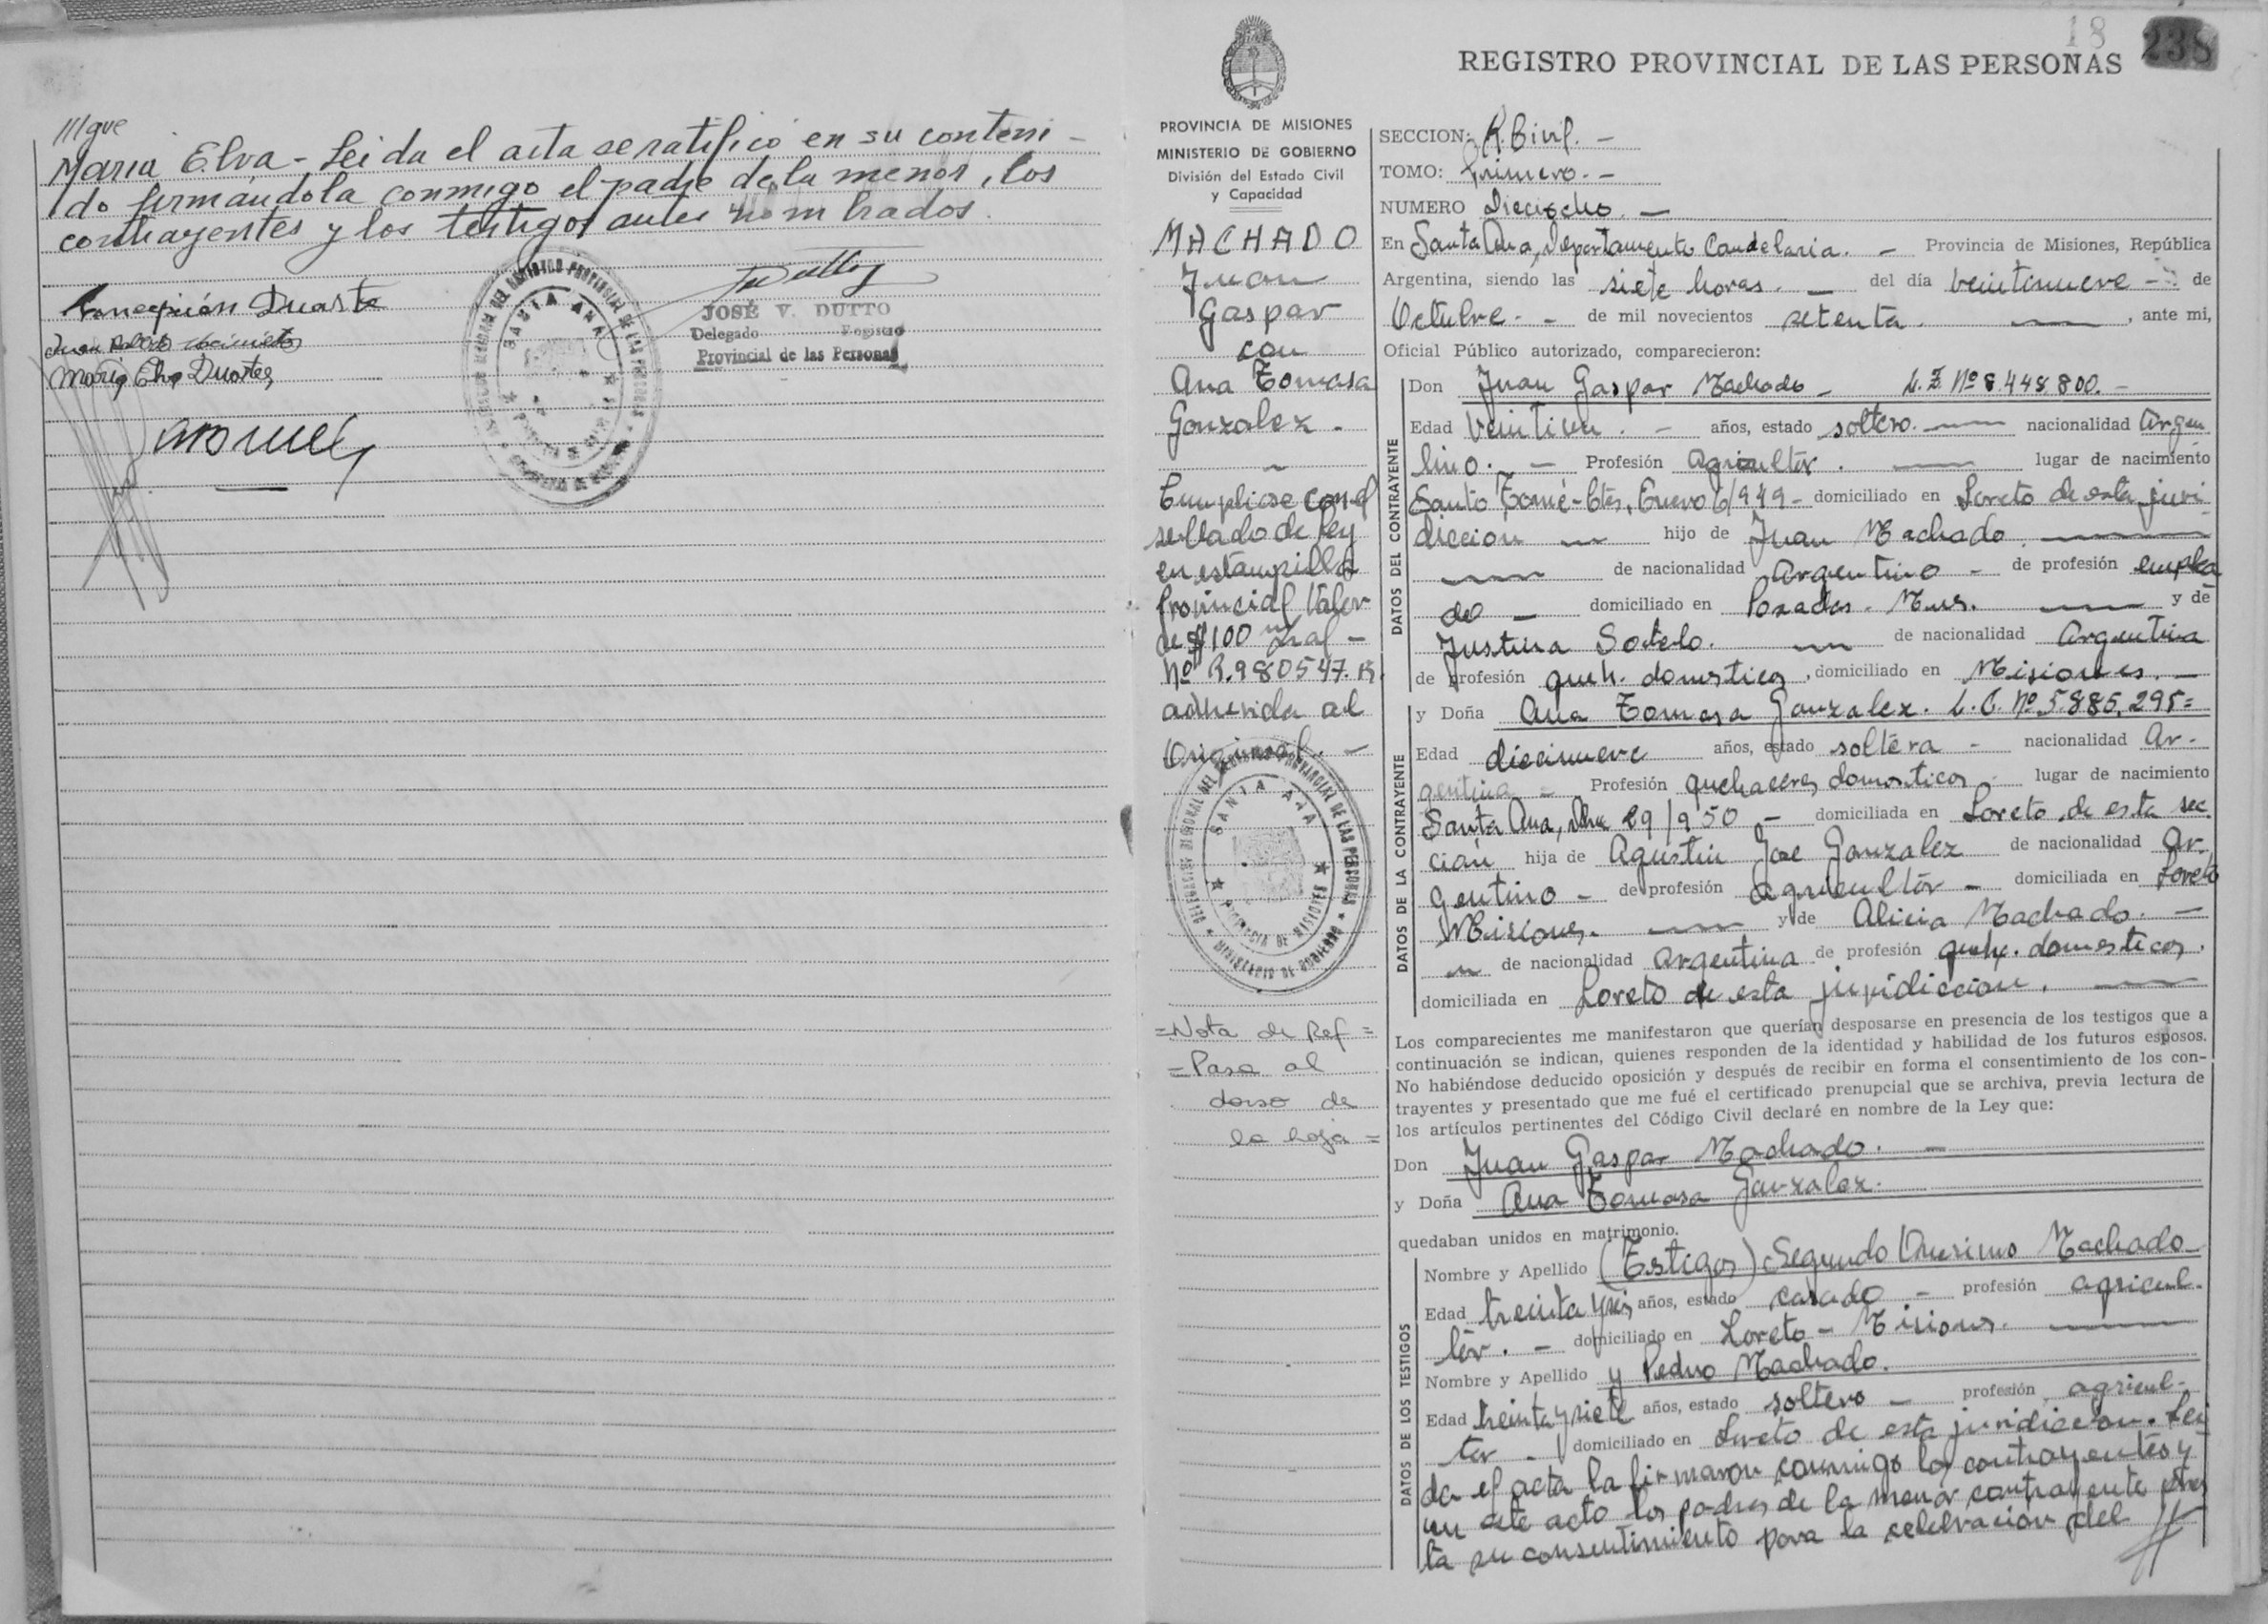 ///que
Maria Elva - Leida el acta se ratificó en su conteni-
do firmándola conmigo el padre de la menor, los
contrayentes y los testigos antes nombrados.
Concepción Duarte
Maria Elva Duarte
JOSÉ V. DUTTO
Delegado Registro
Provincial de las Personas
SANTA ANA
18
238
REGISTRO PROVINCIAL DE LAS PERSONAS
PROVINCIA DE MISIONES
MINISTERIO DE GOBIERNO
División del Estado Civil
y Capacidad
MACHADO
Juan
Gaspar
con
Ana Tomasa
Gonzalez -
Cumpliose con el
sellado de ley
en estampilla
Provincial Valor
de $ 100 m/nal -
Nº R.980547.R.
adherida al
Original. -
SANTA ANA
PROVINCIA DE MISIONES
MINISTERIO DE GOBIERNO
=Nota de Ref=
=Pasa al
dorso de
la hoja=
SECCION: R. Civil. -
TOMO: Primero. -
NUMERO Dieciocho. -
En Santa Ana, Departamento Candelaria. - Provincia de Misiones, República
Argentina, siendo las siete horas. - del día veintinueve - de
Octubre. - de mil novecientos setenta. - , ante mi,
Oficial Público autorizado, comparecieron:
DATOS DEL CONTRAYENTE
Don Juan Gaspar Machado - L.E. Nº 8.448.800. -
Edad veintiun. - años, estado soltero. - nacionalidad Argen
tino. - Profesión Agricultor. - lugar de nacimiento
Santo Tomé - Ctes, Enero 6/949 - domiciliado en Loreto de esta juri
dicción - hijo de Juan Machado. -
- de nacionalidad Argentino - de profesión emplea
do - domiciliado en Posadas - Mnes. - y de
Justina Sotelo. - de nacionalidad Argentina
de profesión queh. domesticos, domiciliado en Misiones. -
DATOS DE LA CONTRAYENTE
y Doña Ana Tomasa Gonzalez. L.C. Nº 5.885.295=
Edad diecinueve años, estado soltera - nacionalidad Ar-
gentina - Profesión quehaceres domesticos - lugar de nacimiento
Santa Ana, 29/950 - domiciliada en Loreto, de esta sec
ción hija de Agustin Jose Gonzalez de nacionalidad Ar.
gentino - de profesión agricultor - domiciliada en Loreto
Misiones. - y de Alicia Machado. -
- de nacionalidad argentina de profesión queh. domesticos.
domiciliada en Loreto de esta juridiccion. -
Los comparecientes me manifestaron que querían desposarse en presencia de los testigos que a
continuación se indican, quienes responden de la identidad y habilidad de los futuros esposos.
No habiéndose deducido oposición y después de recibir en forma el consentimiento de los con-
trayentes y presentado que me fué el certificado prenupcial que se archiva, previa lectura de
los artículos pertinentes del Código Civil declaré en nombre de la Ley que:
Don Juan Gaspar Machado. -
y Doña Ana Tomasa Gonzalez.
quedaban unidos en matrimonio.
DATOS DE LOS TESTIGOS
Nombre y Apellido (Testigos) Segundo Onesimo Machado
Edad treinta y seis años, estado casado - profesión agricul-
tor. - domiciliado en Loreto - Misiones. -
Nombre y Apellido y Pedro Machado.
Edad treinta y siete años, estado soltero - profesión agricul-
tor - domiciliado en Loreto de esta juridiccion. Lei
da el acta la firmaron conmigo los contrayentes y
en este acto los padres de la menor contrayente pres
ta su consentimiento para la celebracion del //